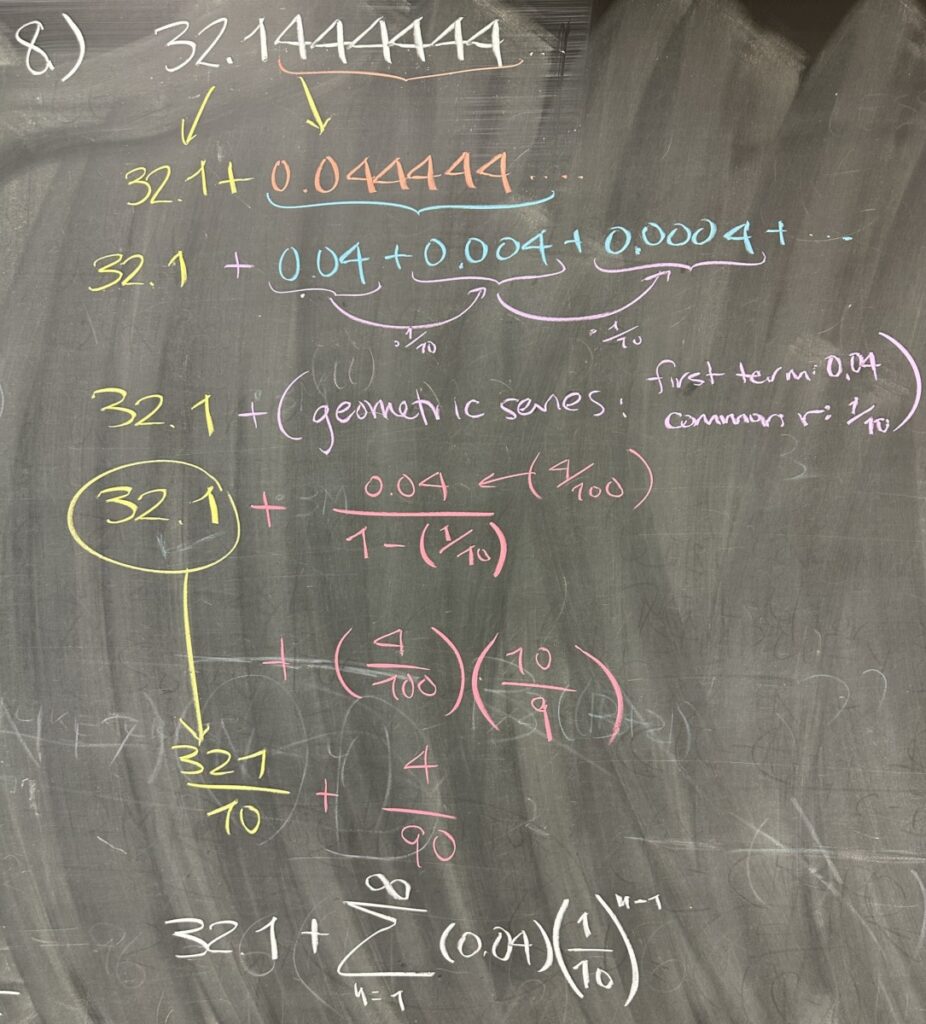 8.) 32.1444444....
32.1 + 0.044444....
32.1 + 0.04 + 0.004 + 0.0004 + ...
· 1/10 · 1/10
32.1 + (geometric series: first term: 0.04
common r: 1/10)
32.1 + 0.04/(1 - (1/10)) ← (4/100)
+ (4/100)(10/9)
321/10 + 4/90
32.1 + ∑_{n=1}^{∞} (0.04)(1/10)^{n-1}